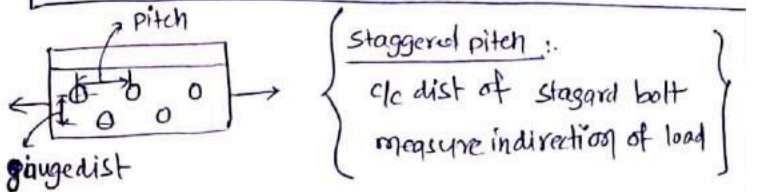 pitch
gaugedist
Staggered pitch :.
c/c dist of stagard bolt
measure indirection of load